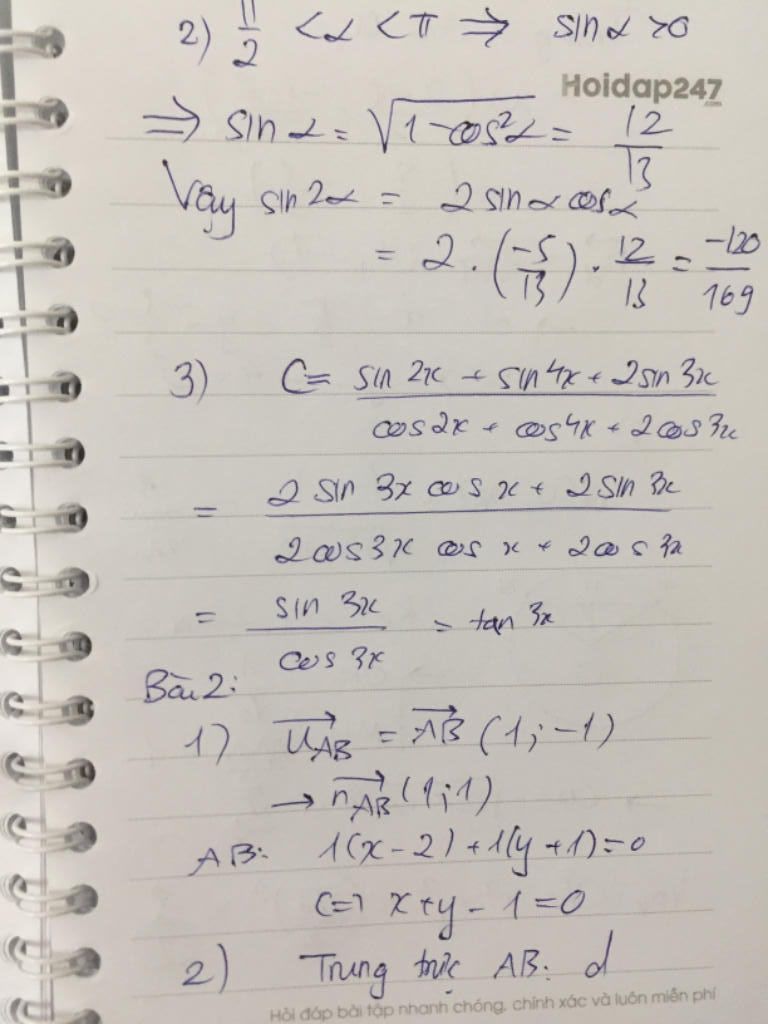 2) π/2 < α < π ⇒ sin α > 0
Hoidap247
.com
⇒ sin α = √(1 - cos²α) = 12/13
Vậy sin 2α = 2 sin α cos α
= 2 . (-5/13) . 12/13 = -120/169
3) C = (sin 2x + sin 4x + 2 sin 3x)/(cos 2x + cos 4x + 2 cos 3x)
= (2 sin 3x cos x + 2 sin 3x)/(2 cos 3x cos x + 2 cos 3x)
= sin 3x/cos 3x = tan 3x
Bài 2:
1) →u_AB = →AB (1; -1)
→ →n_AB (1; 1)
AB: 1(x - 2) + 1(y + 1) = 0
<=> x + y - 1 = 0
2) Trung trực AB: d
Hỏi đáp bài tập nhanh chóng, chính xác và luôn miễn phí